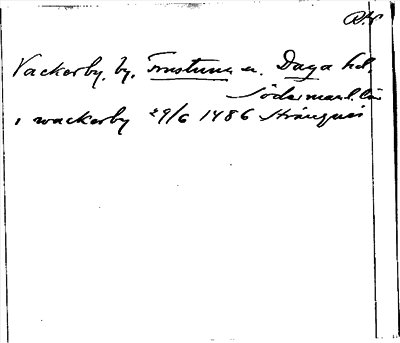 Vackerby, by, Frustuna sn. Daga hd,
Södermanl. län
i wackerby 29/6 1486 Strängnäs